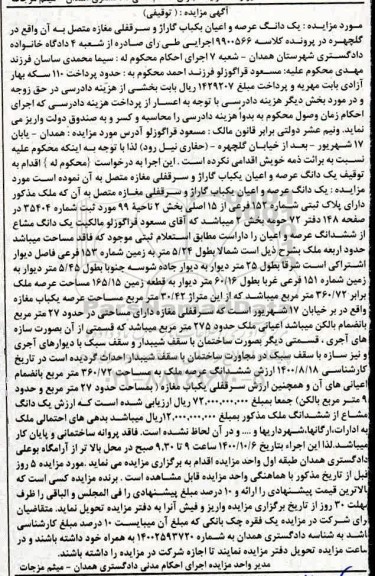 آگهی مزایده : ( توقیفی)
مورد مزایده : یک دانگ عرصه و اعیان یکباب گاراژ و سرقفلی مغازه متصل به آن واقع در
گلچهره در پرونده کلاسه ۹۹۰۰۵۶۶ اجرایی طی رای صادره از شعبه ۴ دادگاه خانواده
دادگستری شهرستان همدان - شعبه ۷ اجرای احکام محکوم له : سیما محمدی ساسان فرزند
مهدی محکوم علیه: مسعود قراگوزلو فرزند احمد محکوم به : حدود پرداخت ۱۱۰ سکه بهار
آزادی بابت مهریه و پرداخت مبلغ ۱۴۲۹۲۰۷ ریال بابت بخشی از هزینه دادرسی در حق زوجه
و در مورد بخش دیگر هزینه دادرسی با توجه به اعسار از پرداخت هزینه دادرسی که اجرای
احکام زمان وصول محکوم به بدوا هزینه دادرسی را محاسبه و کسر و به صندوق دولت واریز می
نماید. ونیم عشر دولتی برابر قانون مالک : مسعود قراگوزلو آدرس مورد مزایده : همدان - پایان
۱۷ شهریور -بعد از خیابان گلچهره - (حفاری نیل رود) لذا با توجه به اینکه محکوم علیه
نسبت به برائت ذمه خویش اقدامی نکرده است . این اجرا به درخواست (محکوم له ) اقدام به
توقیف یک دانگ عرصه و اعیان یکباب گاراژ و سرقفلی مغازه متصل به آن نموده است مورد
مزایده : یک دانگ عرصه و اعیان یکباب گاراژ و سرقفلی مغازه متصل به آن که ملک مذکور
دارای پلاک ثبتی شماره ۱۵۲ فرعی از ۱۵ اصلی بخش ۲ ناحیه ۹۹ مورد ثبت شماره ۳۵۴۰۴ در
صفحه ۱۴۸ دفتر ۷۲ حومه بخش ۲ میباشد که آقای مسعود قراگوزلو مالکیت یک دانگ مشاع
از ششدانگ عرصه و اعیان را داراست مطابق استعلام ثبتی موجود که فاقد مساحت میباشد
حدود اربعه ملک بشرح ذیل است شمالا بطول ۵/۲۴ متر به زمین شماره ۱۵۳ فرعی فاصل دیوار
اشتراکی است شرقا بطول ۲۵ متر دیوار به دیوار جاده شوسه جنوبا بطول ۵/۴۵ متر دیوار به
زمین شماره ۱۵۱ فرعی غربا بطول ۶۰/۱۶ متر دیوار به قطعه زمین ۱۶۵/۱۵ مساحت عرصه ملک
برابر ۳۶۰/۷۲ متر مربع میباشد که از این متراژ ۳۰/۴۲ متر مربع مساحت عرصه یکباب مغازه
واقع در بر خیابان ۱۷ شهریور است که سرقفلی مغازه دارای مساحتی در حدود ۲۷ متر مربع
بانضمام بالکن میباشد اعیانی ملک حدود ۲۷۵ متر مربع میباشد که قسمتی از آن بصورت سازه
های آجری ، قسمتی دیگر بصورت ساختمان با سقف شیبدار و سقف سبک با دیوارهای آجری
و نیز سازه با سقف سبک در مجاورت ساختمان با سقف شیبدار احداث گردیده است در تاریخ
کارشناسی ۱۴۰۰/۸/۱۸ ارزش ششدانگ عرصه ملک به مساحت ۳۶۰/۷۲ متر مربع بانضمام
اعیانی های آن و همچنین ارزش سرقفلی یکباب مغازه (مساحت حدود ۲۷ متر مربع و حدود
۹ متر مربع بالکن) جمعا بمبلغ ۷۲,۰۰۰,۰۰۰,۰۰۰ ریال ارزیابی شده است که ارزش یک دانگ
مشاع از ششدانگ ملک مذکور بمبلغ ۱۲,۰۰۰,۰۰۰,۰۰۰ریال میباشد بدهی های احتمالی ملک
به ادارات،ارگانها،شهرداریها و .... و در آن لحاظ نشده است. فاقد پروانه ساختمانی و پایان کار
میباشد.لذا این اجراء بتاریخ ۱۴۰۰/۱۰/۶ ساعت ۹ تا ۹.۳۰ صبح در محل بالا تر از آرامگاه بوعلی
دادگستری همدان طبقه اول واحد مزایده اقدام به برگزاری مزایده می نماید .مورد مزایده ۵ روز
قبل از تاریخ مذکور با هماهنگی واحد مزایده قابل مشاهده است . برنده مزایده کسی است که
بالاترین قیمت پیشنهادی را ارائه و ۱۰ درصد مبلغ پیشنهادی را فی المجلس و الباقی را ظرف
مهلت ۳۰ روز از تاریخ برگزاری مزایده واریز و فیش آنرا به دفتر مزایده تحویل نماید. متقاضیان
برای شرکت در مزایده یک فقره چک بانکی که مبلغ آن میبایست ۱۰ درصد مبلغ کارشناسی
باشد به شناسه دادگستری همدان به شماره ۱۴۰۰۲۵۹۳۷۲۰ به همراه خود داشته باشند و در
ساعت مزایده تحویل دفتر مزایده نمایند تا اجازه شرکت در مزایده را داشته باشند.
مدیر واحد مزایده اجرای احکام مدنی دادگستری همدان - میثم مزجات